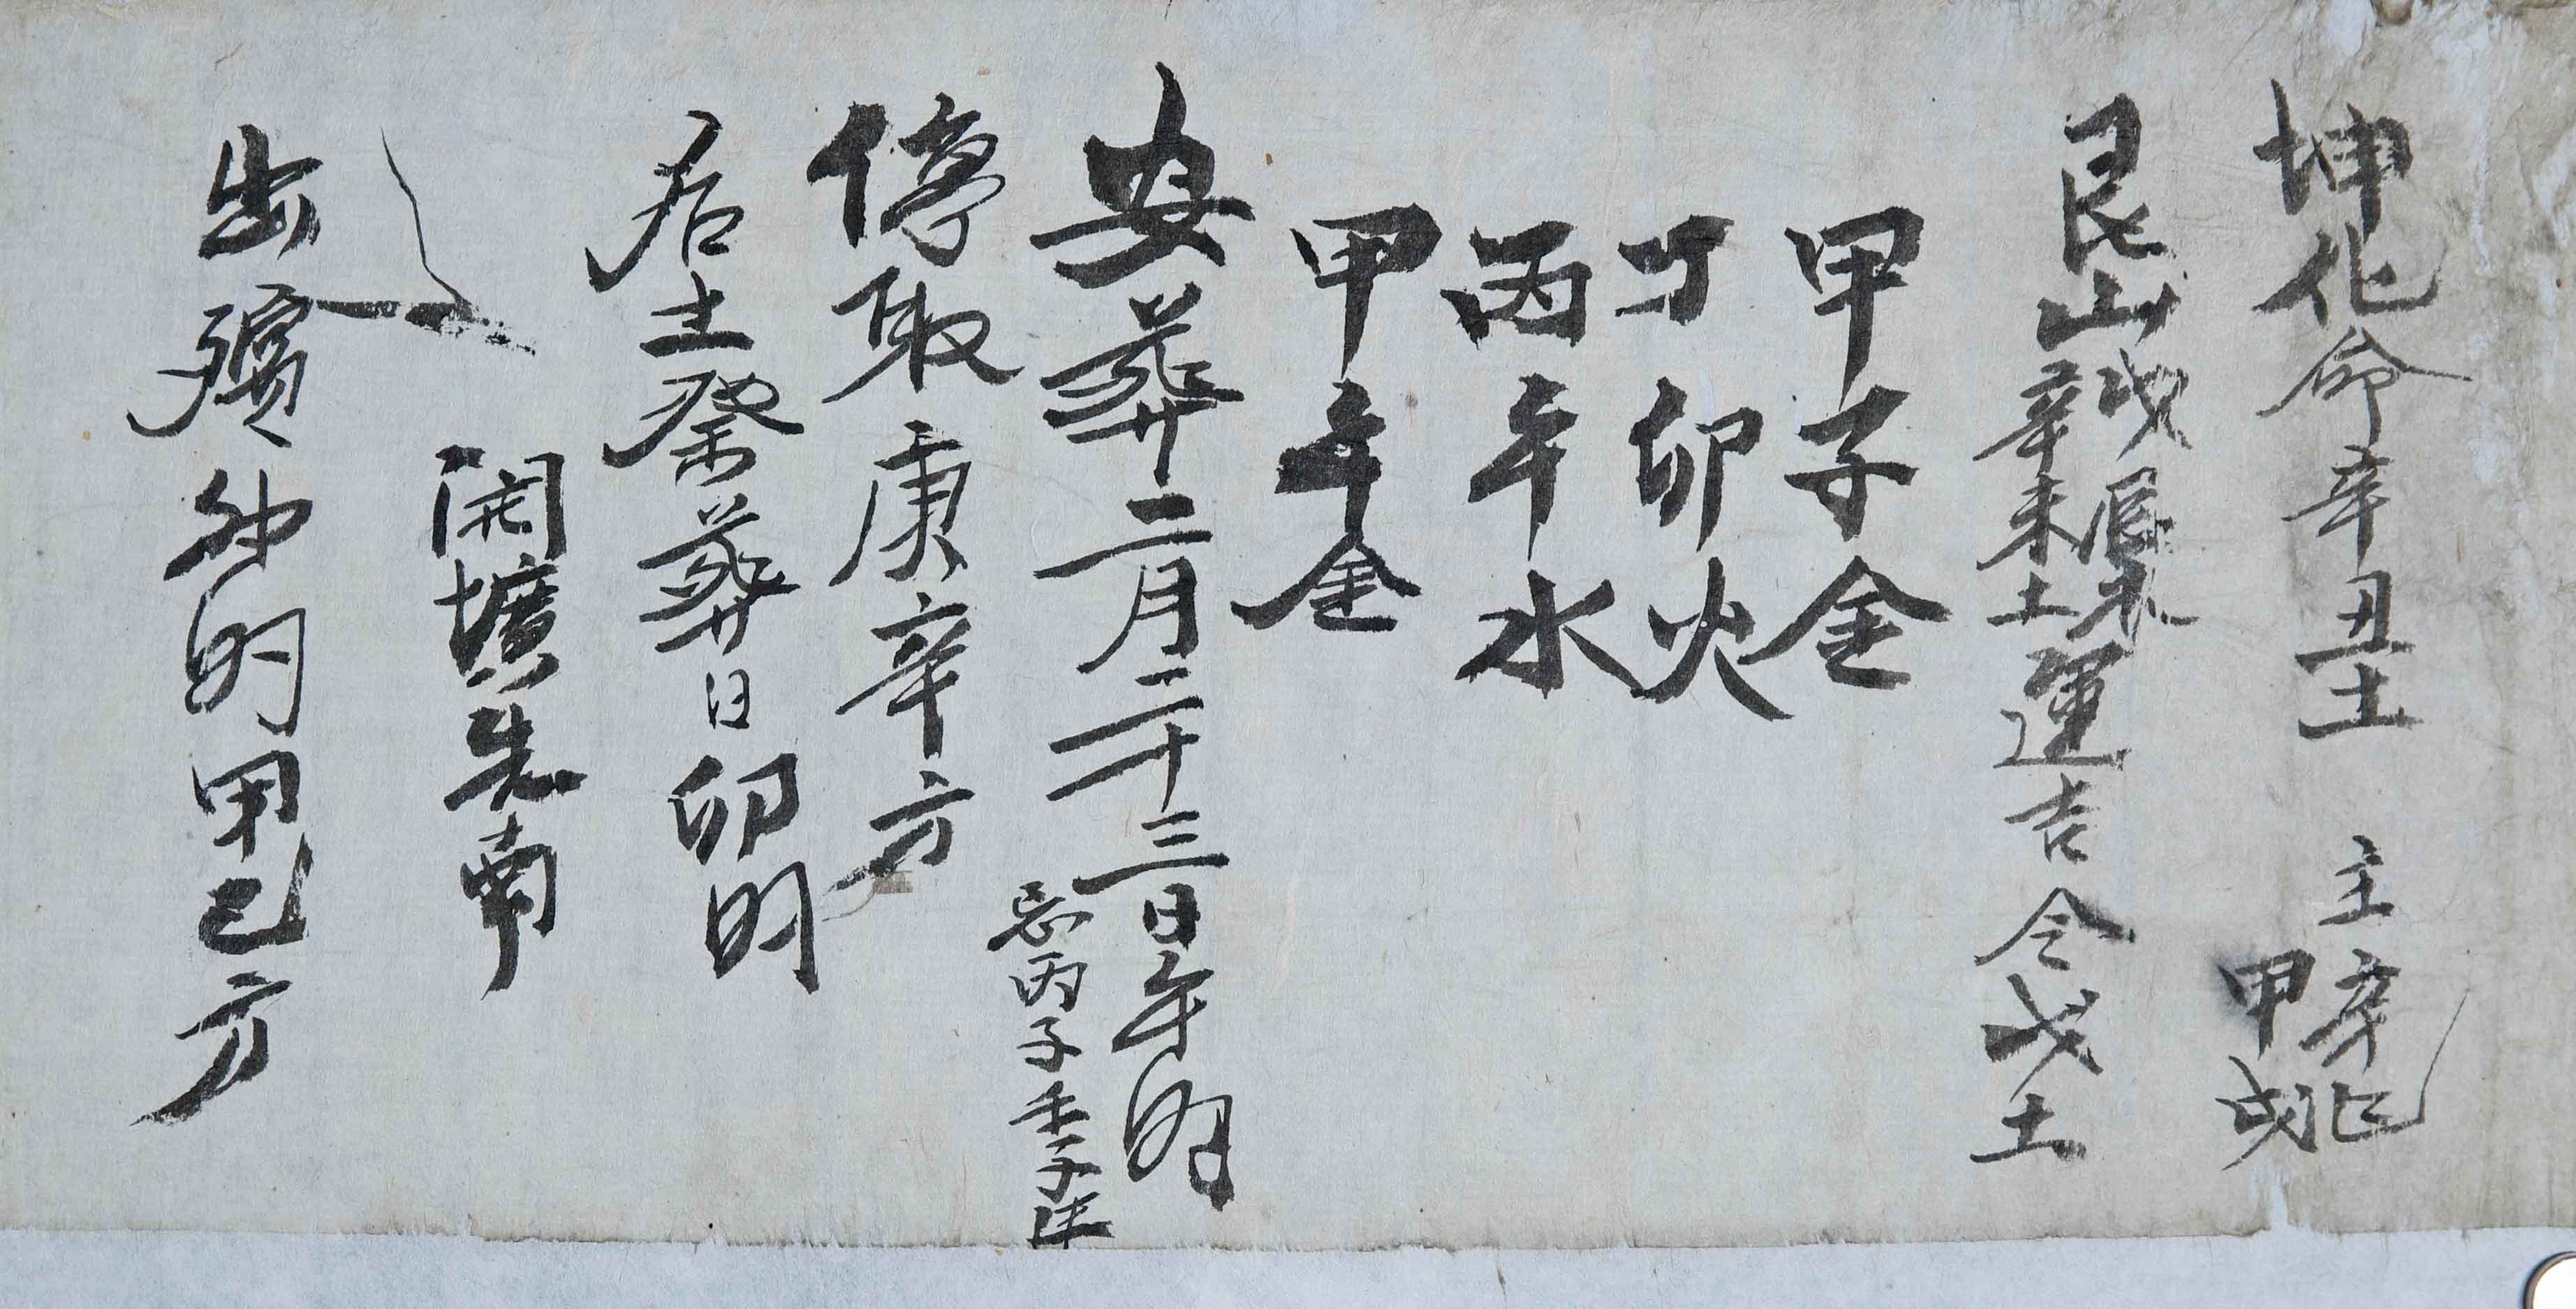 坤化命辛丑土 主辛巳
甲戌
艮山戊辰木
辛未土運吉 令戊土
甲子金
丁卯火
丙午水
甲午金
安葬二月二十三日午时
忌丙子壬子生
停取庚辛方
后土祭葬日卯时
開壙先南
出殯卯时甲巳方